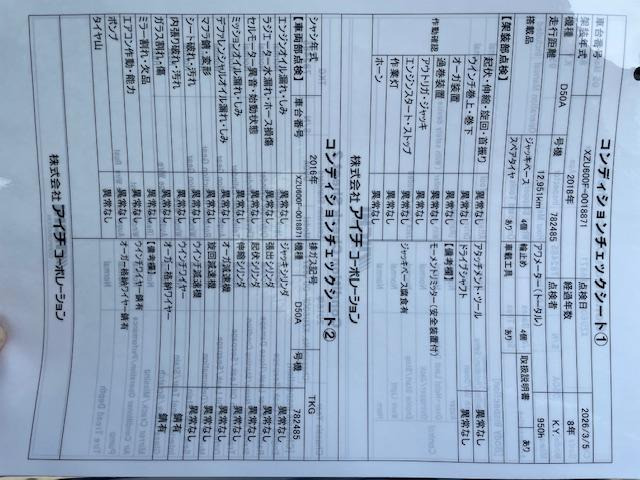 コンディションチェックシート①
車台番号 XZU600F-0018871 点検日 2026/3/5
架装年式 2018年 経過年数 8年
機種 D50A 号機 782485 点検者 K.Y.
走行距離 12,951km アワメーター(トータル) 950h
搭載品 ジャッキベース 4個 輪止め 4個 取扱説明書 あり
スペアタイヤ あり 車載工具 あり
【架装部点検】
作動確認 起伏・伸縮・旋回・首振り 異常なし アタッチメント・ツール 異常なし
ウインチ巻上・巻下 異常なし ドライブシャフト 異常なし
オーガ装置 異常なし 【備考欄】
過巻装置 異常なし モーメントリミッター(安全装置付)
アウトリガ・ジャッキ 異常なし
エンジンスタート・ストップ 異常なし ジャッキベース腐食有
作業灯 異常なし
ホーン 異常なし
株式会社 アイチ コーポレーション
コンディションチェックシート②
シャシ年式 2016年 排ガス記号 TKG
車台番号 XZU600F-0018871 機種 D50A 号機 782485
【車両部点検】
エンジンオイル漏れ・しみ 異常なし ジャッキシリンダ 異常なし
ラジエーター水漏れ・ホース損傷 異常なし 張出シリンダ 異常なし
セルモーター異音・始動状態 異常なし 起伏シリンダ 異常なし
ミッションオイル漏れ・しみ 異常なし 伸縮シリンダ 異常なし
デファレンシャルオイル漏れ・しみ 異常なし オーガ減速機 異常なし
マフラ錆・変形 異常なし 旋回減速機 異常なし
シート破れ・汚れ 異常なし ウインチ減速機 異常なし
内張り破れ・汚れ 異常なし ウインチワイヤー 錆有
ガラス割れ・傷 異常なし オーガ格納ワイヤー 錆有
ミラー割れ・欠品 異常なし 【備考欄】
エアコン作動・能力 異常なし ウインチワイヤー錆有
ポンプ 異常なし オーガ格納ワイヤー錆有
タイヤ山 異常なし
株式会社 アイチ コーポレーション